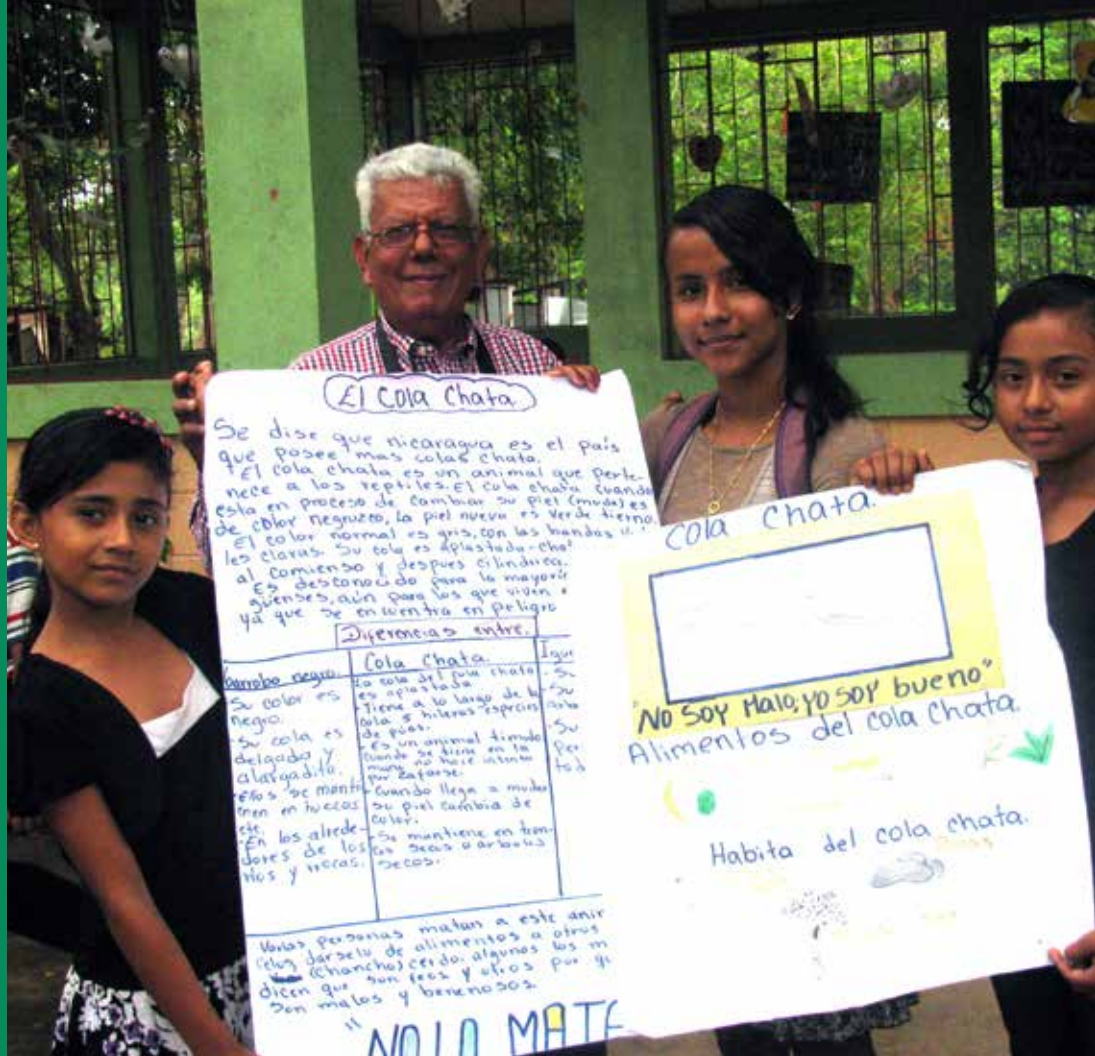 El Cola Chata
Se dise que nicaragua es el país
que posee mas colas chata.
El cola chata es un animal que perte-
nece a los reptiles. El cola chata cuando
esta en proceso de cambiar su piel (muda) es
de color negruzco, la piel nueva es verde tierno.
El color normal es gris, con las bandas
les claras. Su cola es aplastada-cha
al comienso y despues cilindrica.
Es desconocido para la mayorí
güenses, aún para los que viven
ya que se encuentra en peligro
Diferencias entre.
Garrobo negro.
-Su color es
negro.
-Su cola es
delgada y
alargadita.
-Ellos se manti
enen en huecos
etc.
-En los alrede-
dores de los
rios y rrocas.
Cola Chata.
La cola del cola chata
es aplastada
-Tiene a lo largo de la
cola 5 hileras
de púas.
-Es un animal timido
cuando se tiene en la
mano no hace intento
por zafarse.
-Cuando llega a mudar
su piel cambia de
color.
-Se mantiene en tron-
cos secos o arboles
secos.
Igua
-Su
-Su
-Su
Per
tod
Varias personas matan a este anim
dárselo de alimentos a otros
(chancho) cerdo, algunos los m
dicen que son feos y otros por q
son malos y benenosos.
"NO LO MATE
Cola Chata.
"NO SOY Malo, yo soy bueno"
Alimentos del cola chata.
Habita del cola chata.